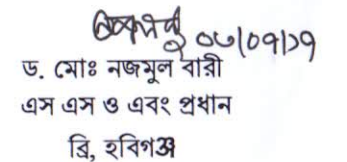 ০৩/০৭/১৭
ড. মোঃ নজমুল বারী
এস এস ও এবং প্রধান
ব্রি, হবিগঞ্জ